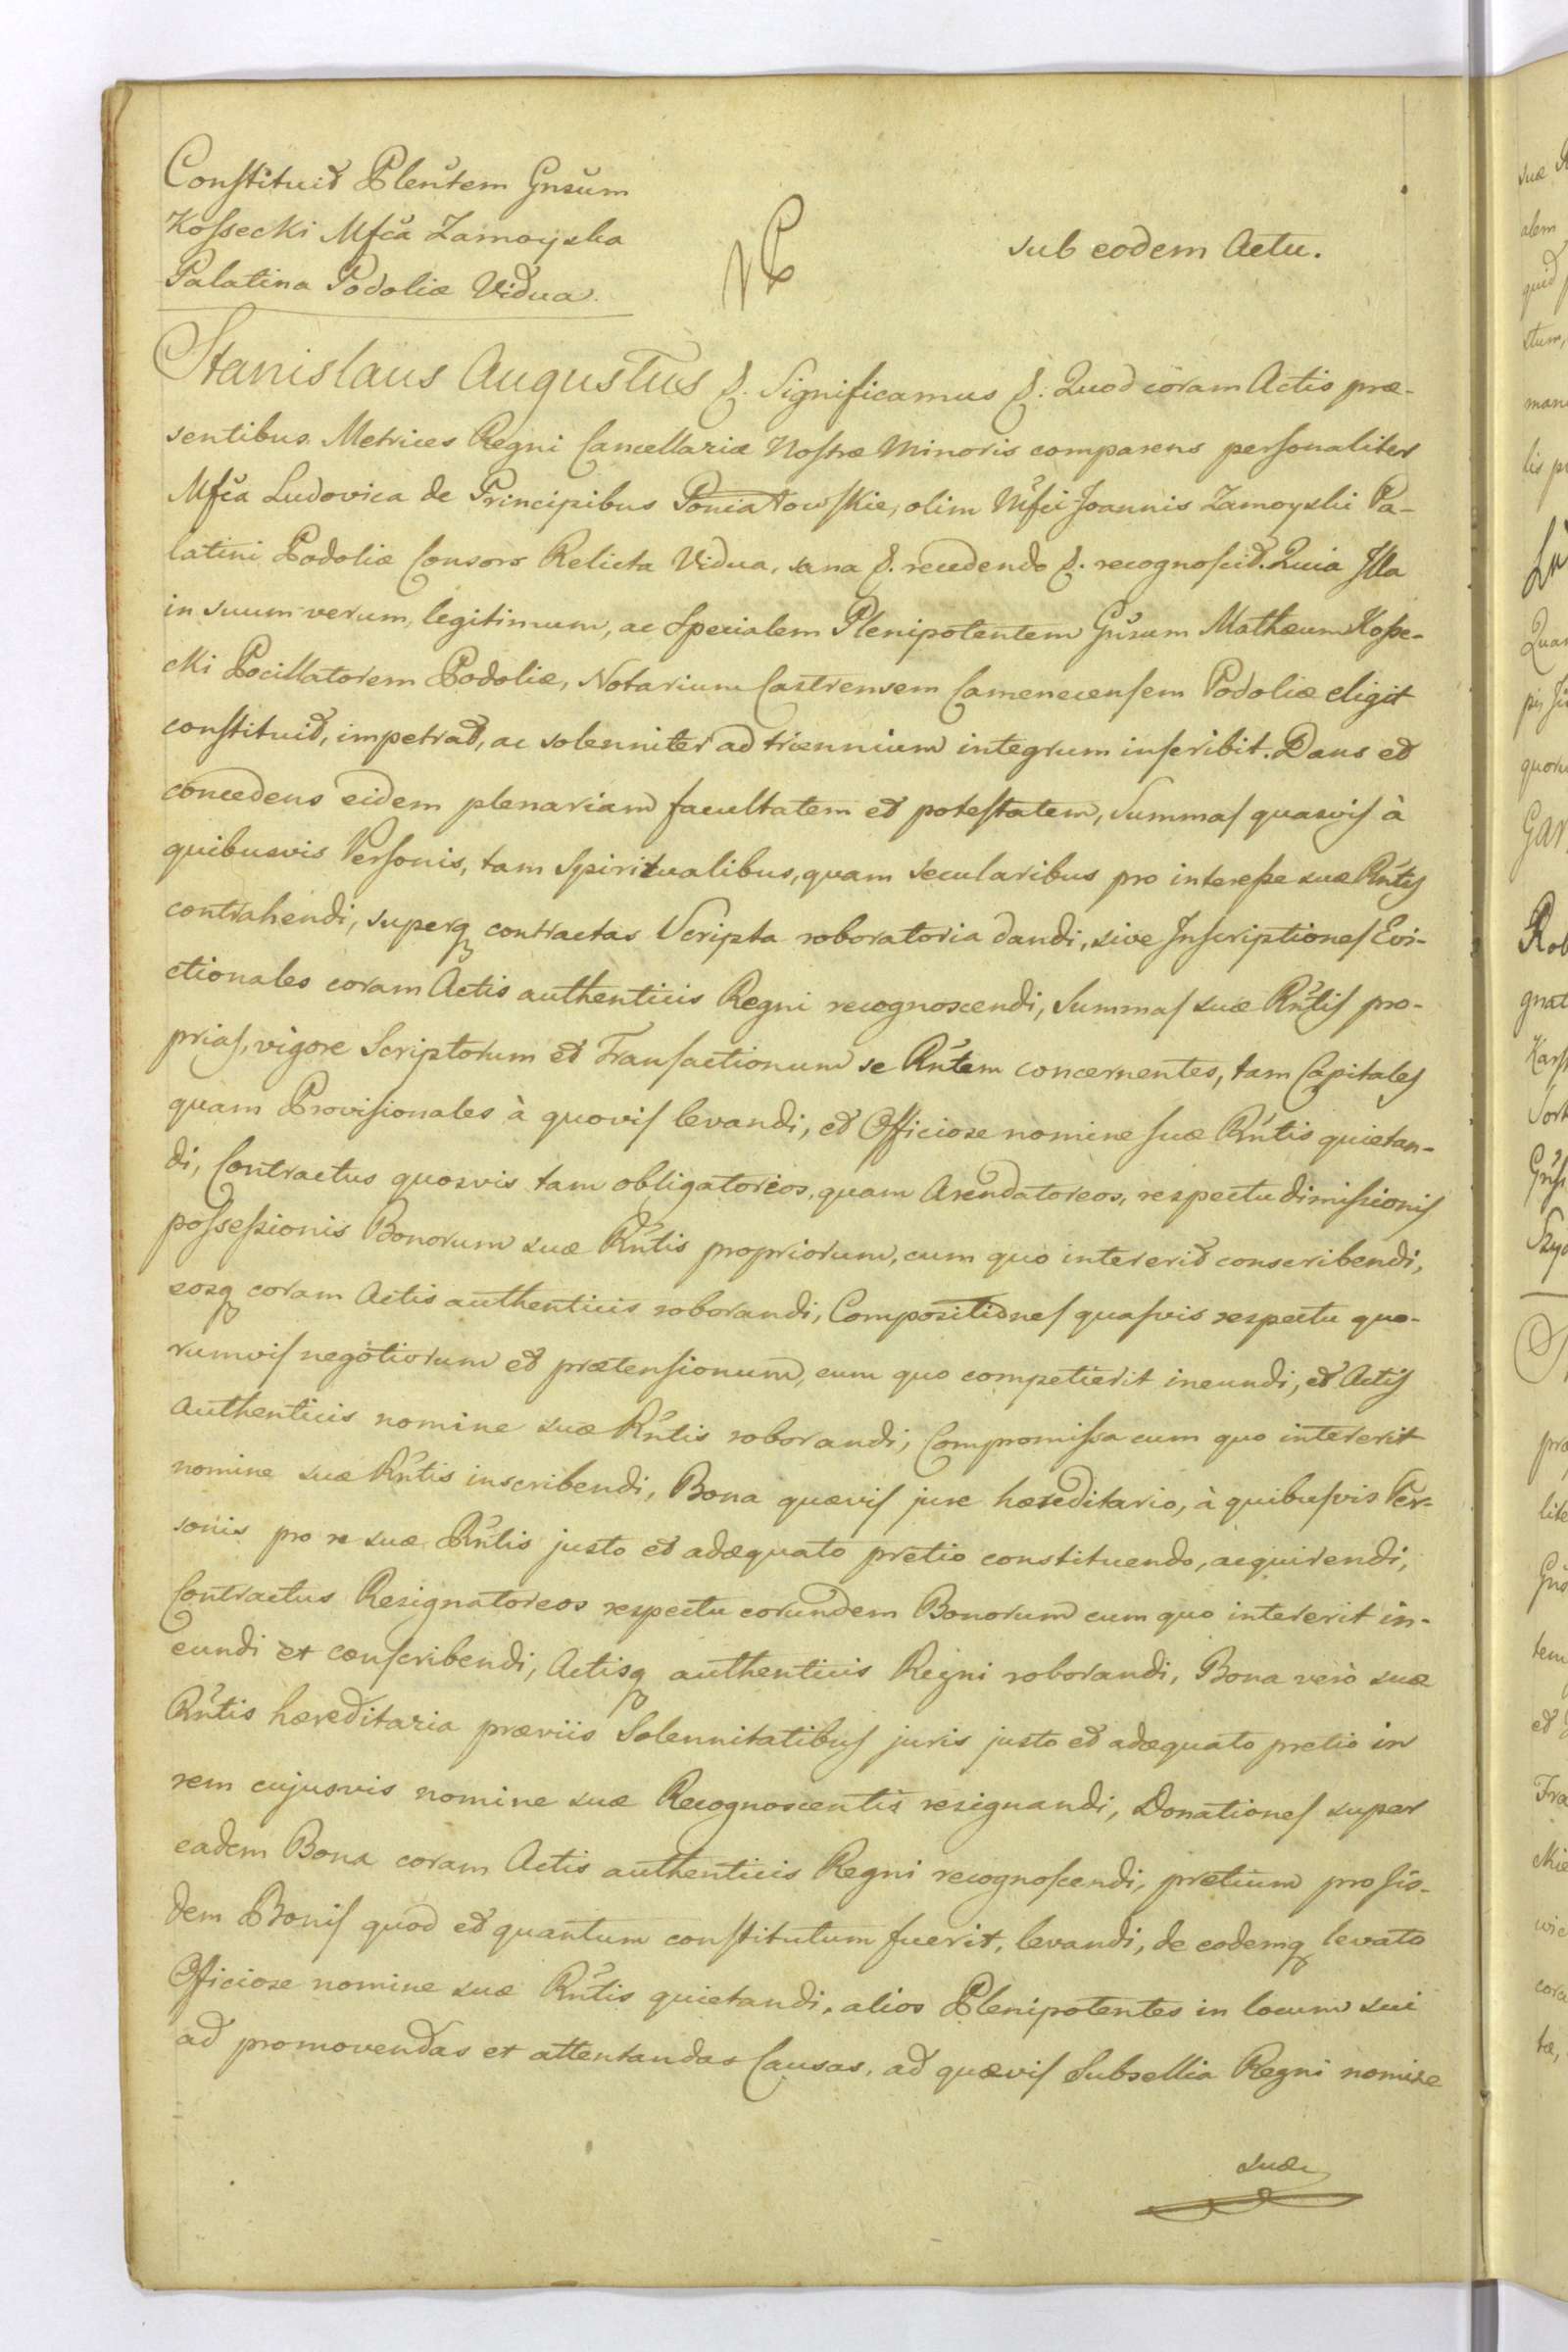 Constituit Plenṫem Gnsum
Kossecki Mfca Zamoyska
Palatina Podoliæ Vidua.
sub eodem Actu.
Stanislaus Augustus &. Significamus &: Quod coram Actis præ-
sentibus Metrices Regni Cancellariæ Nostræ Minoris comparens personaliter
Mfca Ludovica de Principibus Poniatowskie, olim Mfci Joannis Zamoyski Pa-
latini Podoliæ Consors Relicta Vidua, sana &. recedendo &. recognoscit. Quia Illa
in suum verum, legitimum, ac Specialem Plenipotentem Gnsum Mathæum Kosse-
cki Pocillatorem Podoliæ, Notarium Castrensem Camenecensem Podoliæ eligit
constituit, impetrat, ac solenniter ad triennium integrum inscribit. Dans et
concedens eidem plenariam facultatem et potestatem, Summas quasvis à
quibusvis Personis, tam Spiritualibus, quam secularibus pro interesse suæ Rntis
contrahendi, superq contractas Scripta roboratoria dandi, sive Inscriptiones Evi-
ctionales coram Actis authenticis Regni recognoscendi, Summas suæ Rntis pro-
prias, vigore Scriptorum et Transactionum se Rntem concernentes, tam Capitales
quam Provisionales à quovis levandi, et Officiose nomine suæ Rntis quietan-
di, Contractus quosvis tam obligatorios, quam Arendatoreos, respectu dimissionis
possessionis Bonorum suæ Rntis propriorum, cum quo intererit conscribendi,
eosq coram Actis authenticis roborandi, Compositiones quasvis respectu quo-
rumvis negotiorum et prætensionum, cum quo competierit ineundi, et Actis
Authenticis nomine suæ Rntis roborandi, Compromissa cum quo intererit
nomine suæ Rntis inscribendi, Bona quævis jure hæreditario, à quibusvis Per-
sonis pro re suæ Rntis justo et adæquato pretio constituendo, acquirendi,
Contractus Resignatoreos respectu eorundem Bonorum cum quo intererit in-
eundi et conscribendi, Actisq authenticis Regni roborandi, Bona verò suæ
Rntis hæreditaria præviis Solennitatibus juris justo et adæquato pretio in
rem cujusvis nomine suæ Recognoscentis resignandi, Donationes super
eadem Bona coram Actis authenticis Regni recognoscendi, pretium pro iis-
dem Bonis quod et quantum constitutum fuerit, levandi, de eodemq levato
Officiose nomine suæ Rntis quietandi, alios Plenipotentes in locum sui
ad promovendas et attentandas Causas, ad quævis Subsellia Regni nomine
suæ